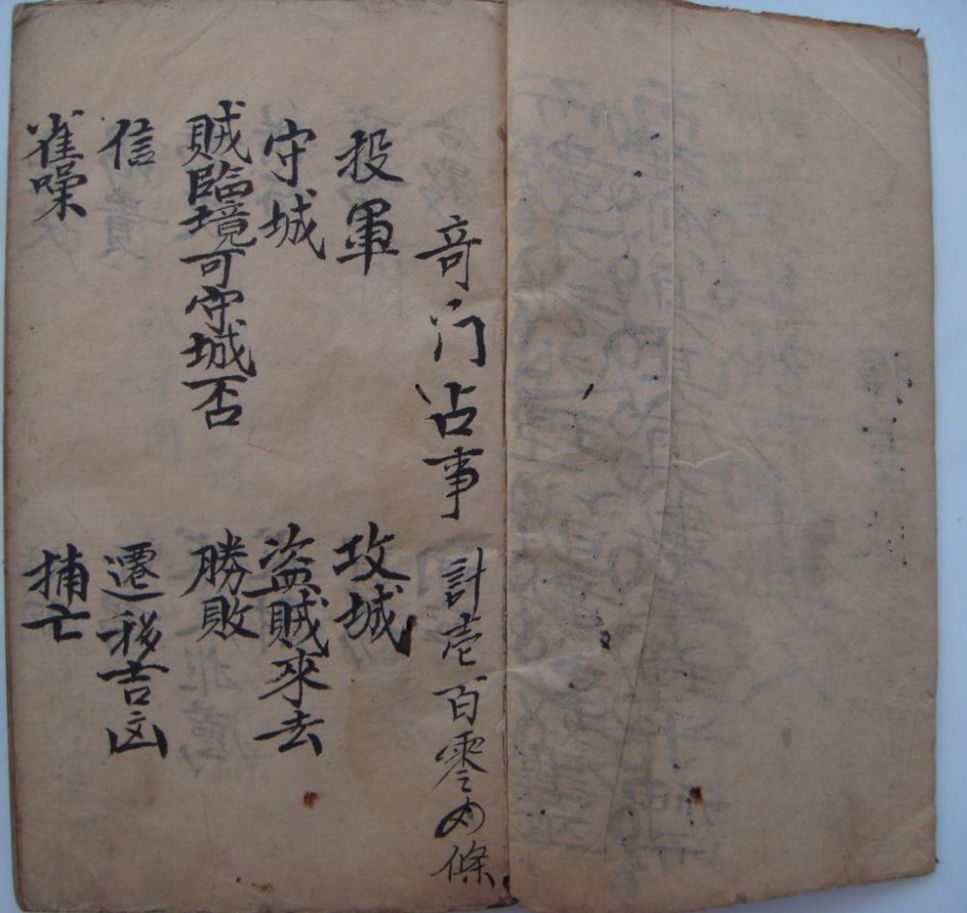 竒门占事 計壱百零四條
投軍 攻城
守城 盗賊來去
賊臨境可守城否 勝敗
信 遷移吉凶
雀噪 捕亡